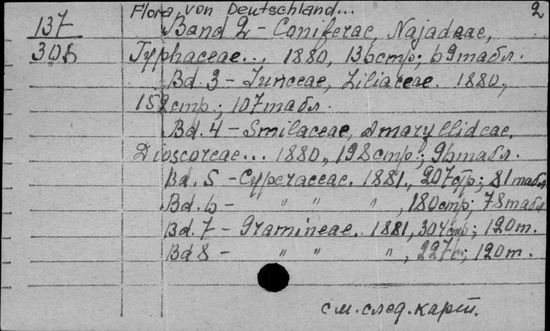 Flora von Deutschland... 2
137 Band 2 - Coniferae, Najadeae,
308 Typhaceae... 1880, 136стр; 69табл.
Bd. 3 - Junceae, Liliaceae. 1880,
152стр; 107табл.
Bd. 4 - Smilaceae, Amaryllideae,
Dioscoreae... 1880, 198стр; 96табл.
Bd. 5 - Cyperaceae. 1881, 207стр; 81табл
Bd. 6 - " " " , 180стр; 78табл
Bd. 7 - Gramineae. 1881, 304стр; 120т.
Bd 8 - " " " , 227с; 120т.
см. след. карт.